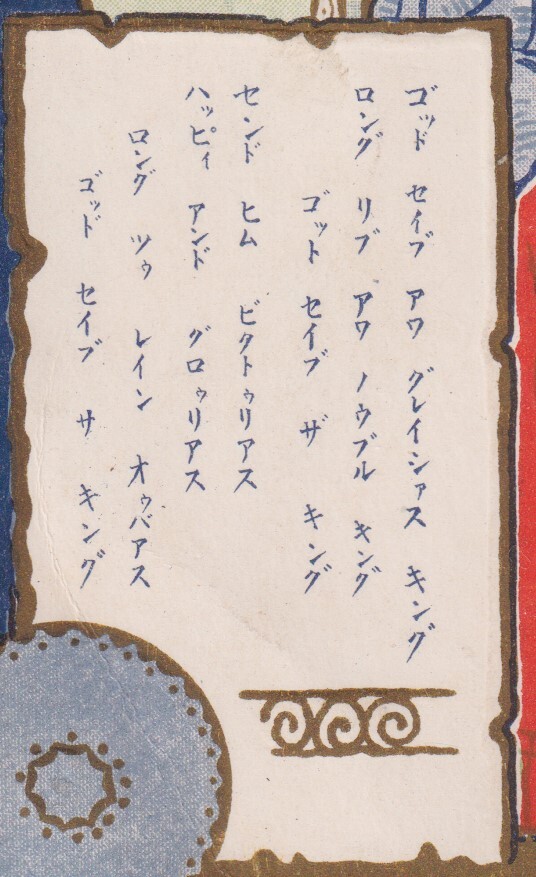 ゴッド セイブ アワ グレイシァス キング
ロング リブ アワ ノウブル キング
ゴット セイブ ザ キング
センド ヒム ビクトゥリアス
ハッピィ アンド グロゥリアス
ロング ツゥ レイン オゥバアス
ゴッド セイブ サ キング